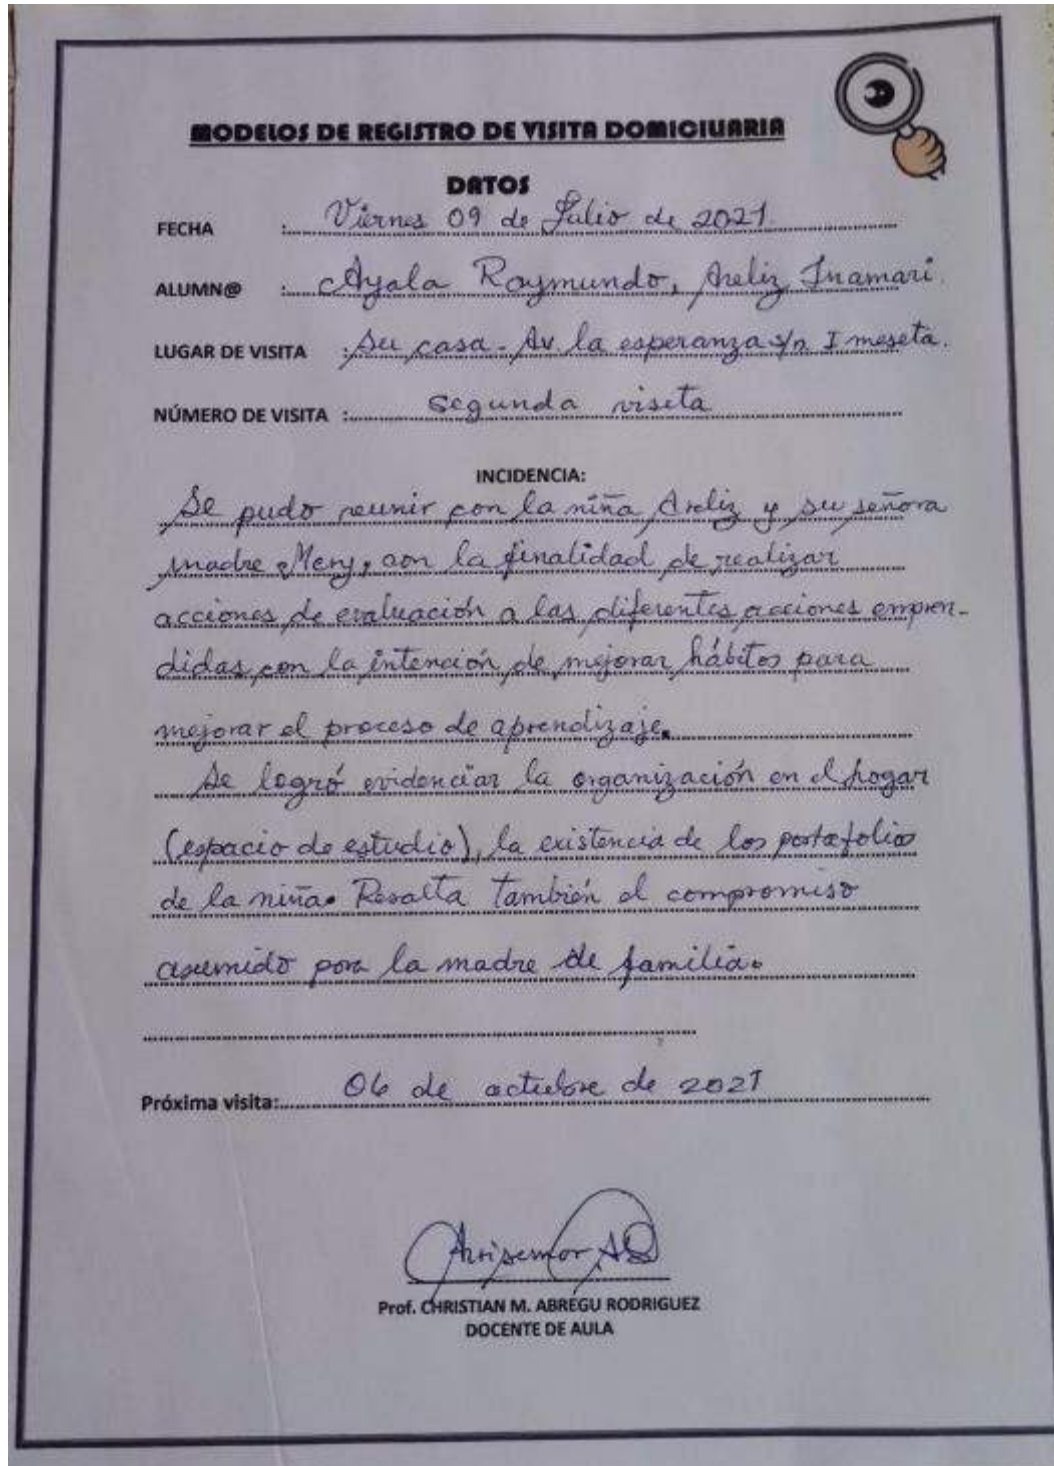 MODELOS DE REGISTRO DE VISITA DOMICILIARIA
DATOS
FECHA : Viernes 09 de Julio de 2021
ALUMN@ : Ayala Raymundo, Areliz Inamari.
LUGAR DE VISITA : Su casa - Av. la esperanza s/n I meseta.
NÚMERO DE VISITA : segunda visita
INCIDENCIA:
Se pudo reunir con la niña Areliz y su señora
madre Meny, con la finalidad de realizar
acciones de evaluación a las diferentes acciones empren-
didas con la intención de mejorar hábitos para
mejorar el proceso de aprendizaje.
Se logró evidenciar la organización en el hogar
(espacio de estudio), la existencia de los portafolios
de la niña. Resalta también el compromiso
asumido por la madre de familia.
Próxima visita: 06 de octubre de 2021
Prof. CHRISTIAN M. ABREGU RODRIGUEZ
DOCENTE DE AULA